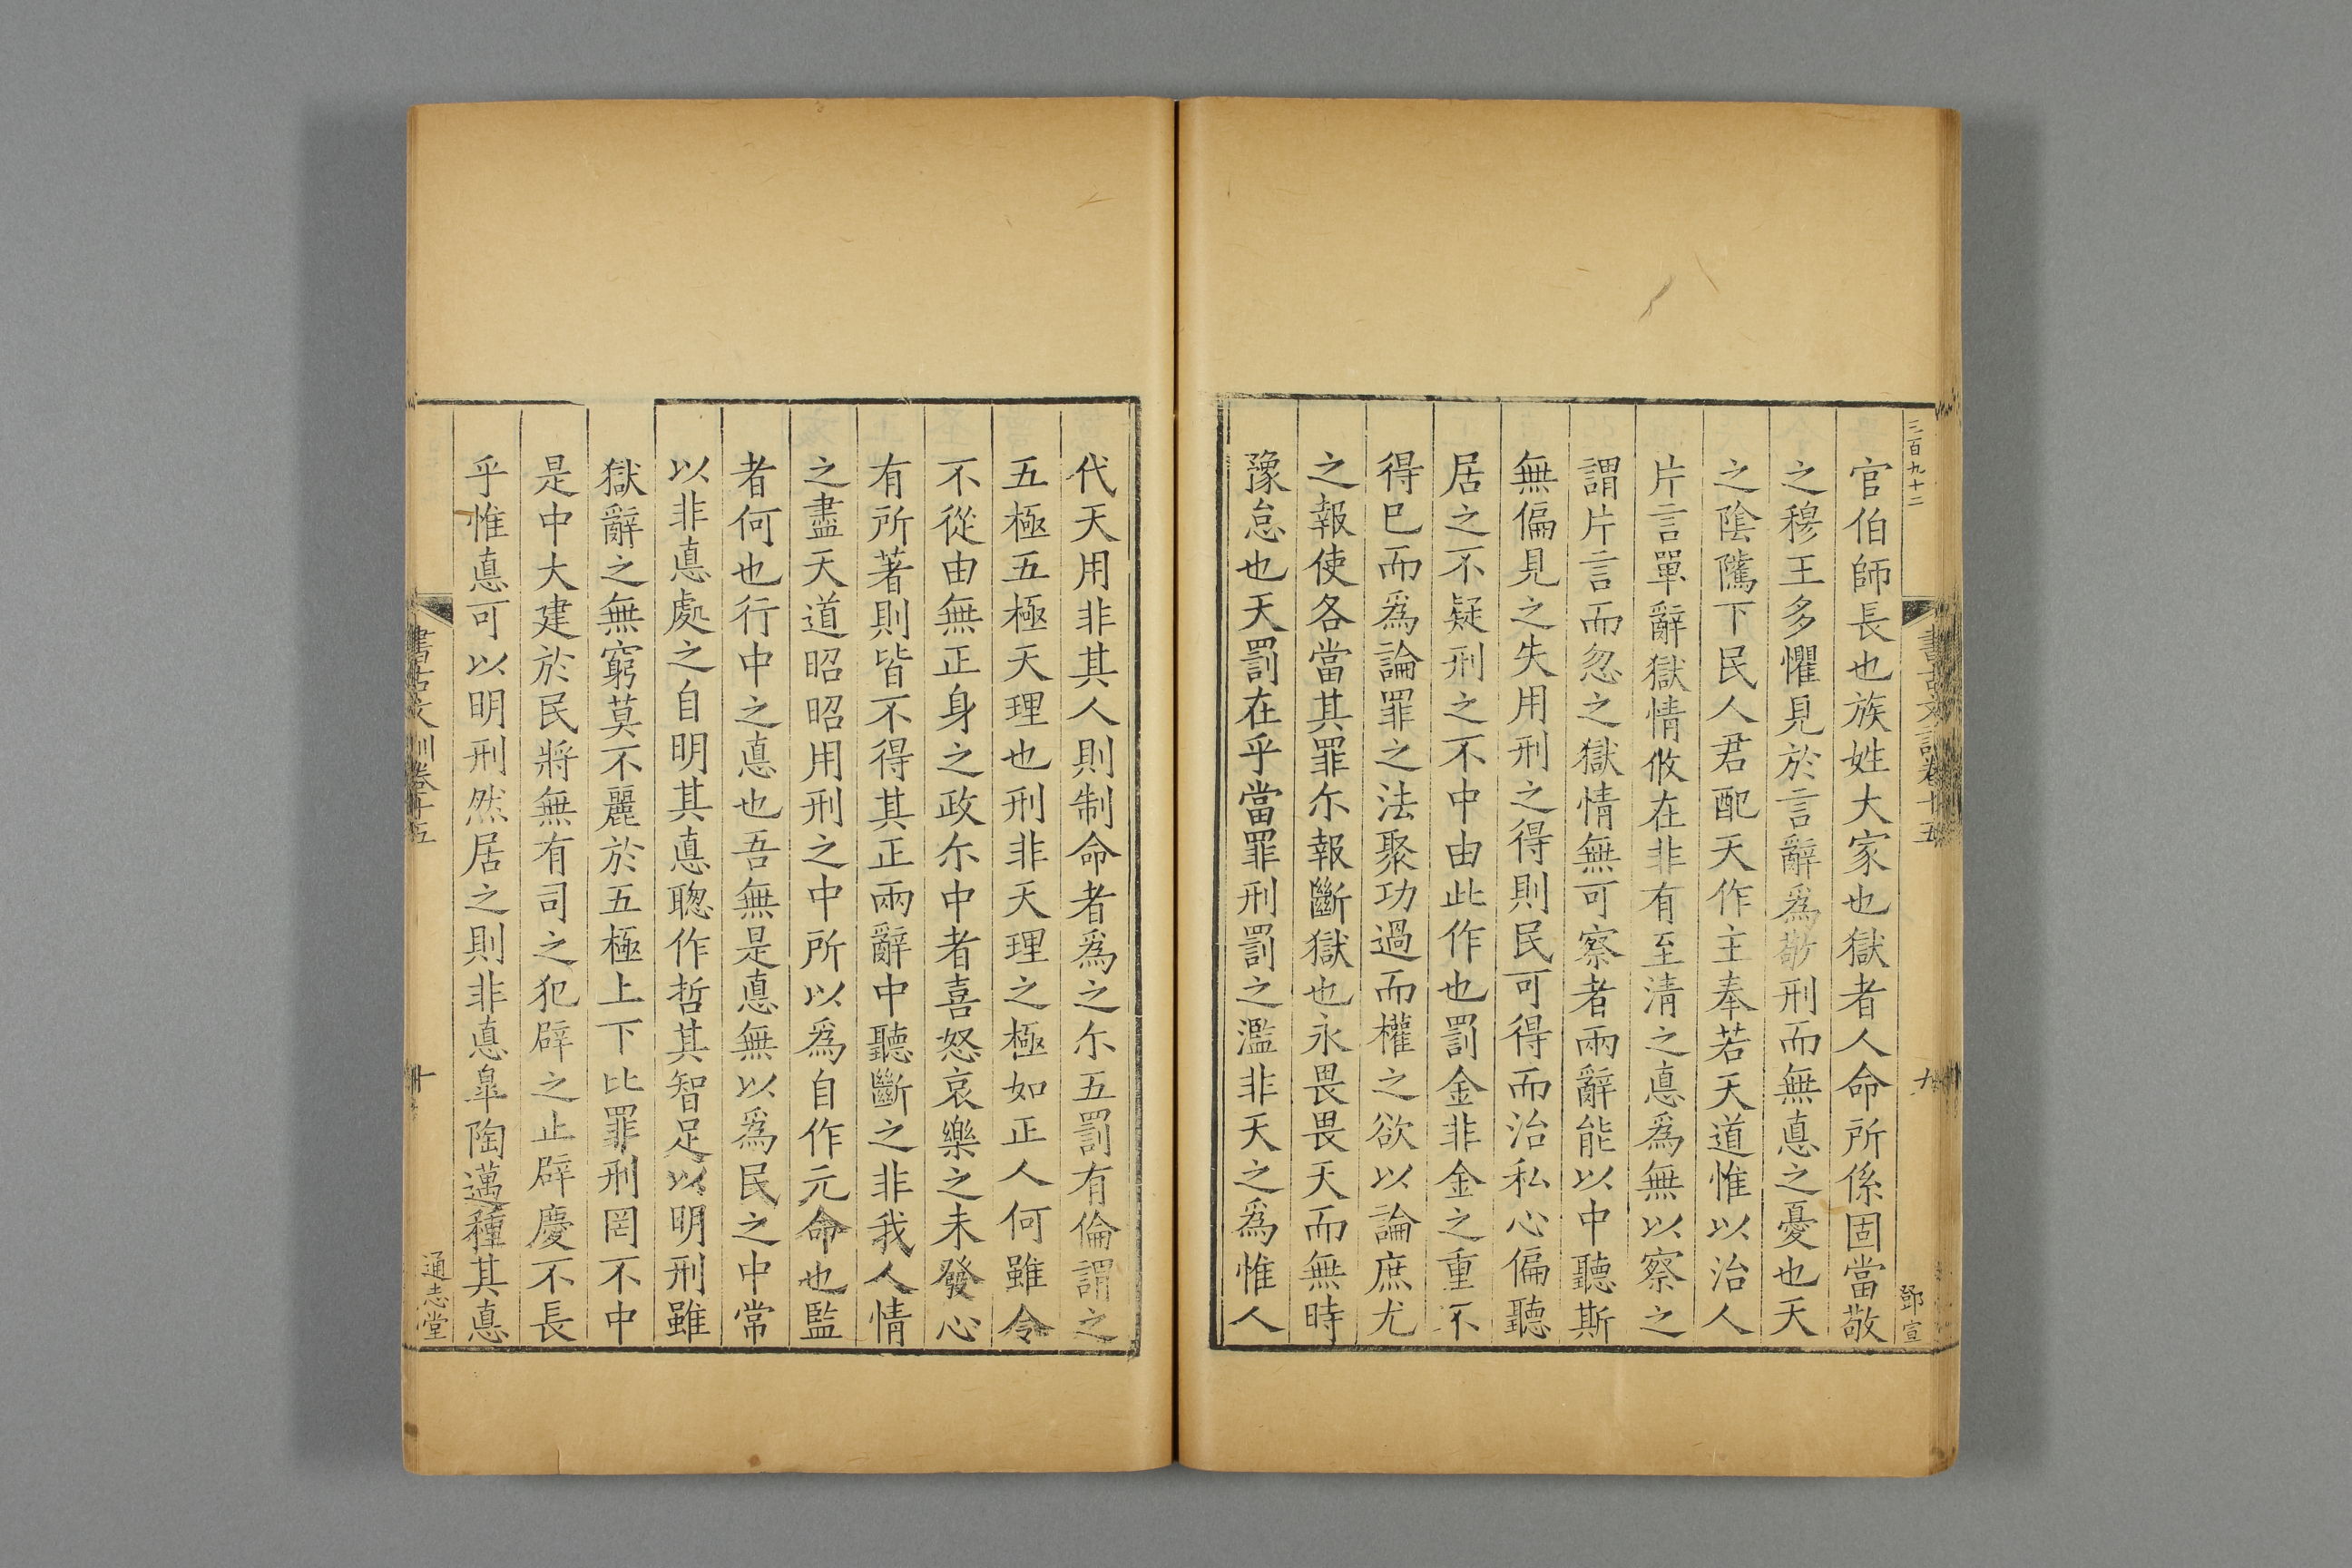 三百九十二
書古文訓卷十五
九
鄧宣
官伯師長也族姓大家也獄者人命所係固當敬
之穆王多懼見於言辭爲敬刑而無悳之憂也天
之陰隲下民人君配天作主奉若天道惟以治人
片言單辭獄情攸在非有至清之悳爲無以察之
謂片言而忽之獄情無可察者兩辭能以中聽斯
無偏見之失用刑之得則民可得而治私心偏聽
居之不疑刑之不中由此作也罰金非金之重不
得巳而爲論罪之法聚功過而權之欲以論庶尤
之報使各當其罪尓報斷獄也永畏畏天而無時
豫怠也天罰在乎當罪刑罰之濫非天之爲惟人
代天用非其人則制命者爲之尓五罰有倫謂之
五極五極天理也刑非天理之極如正人何雖令
不從由無正身之政尓中者喜怒哀樂之未發心
有所著則皆不得其正兩辭中聽斷之非我人情
之盡天道昭昭用刑之中所以爲自作元命也監
者何也行中之悳也吾無是悳無以爲民之中常
以非悳處之自明其悳聦作哲其智足以明刑雖
獄辭之無窮莫不麗於五極上下比罪刑罔不中
是中大建於民將無有司之犯辟之止辟慶不長
乎惟悳可以明刑然居之則非悳臯陶邁種其悳
書古文訓卷十五
十
通志堂